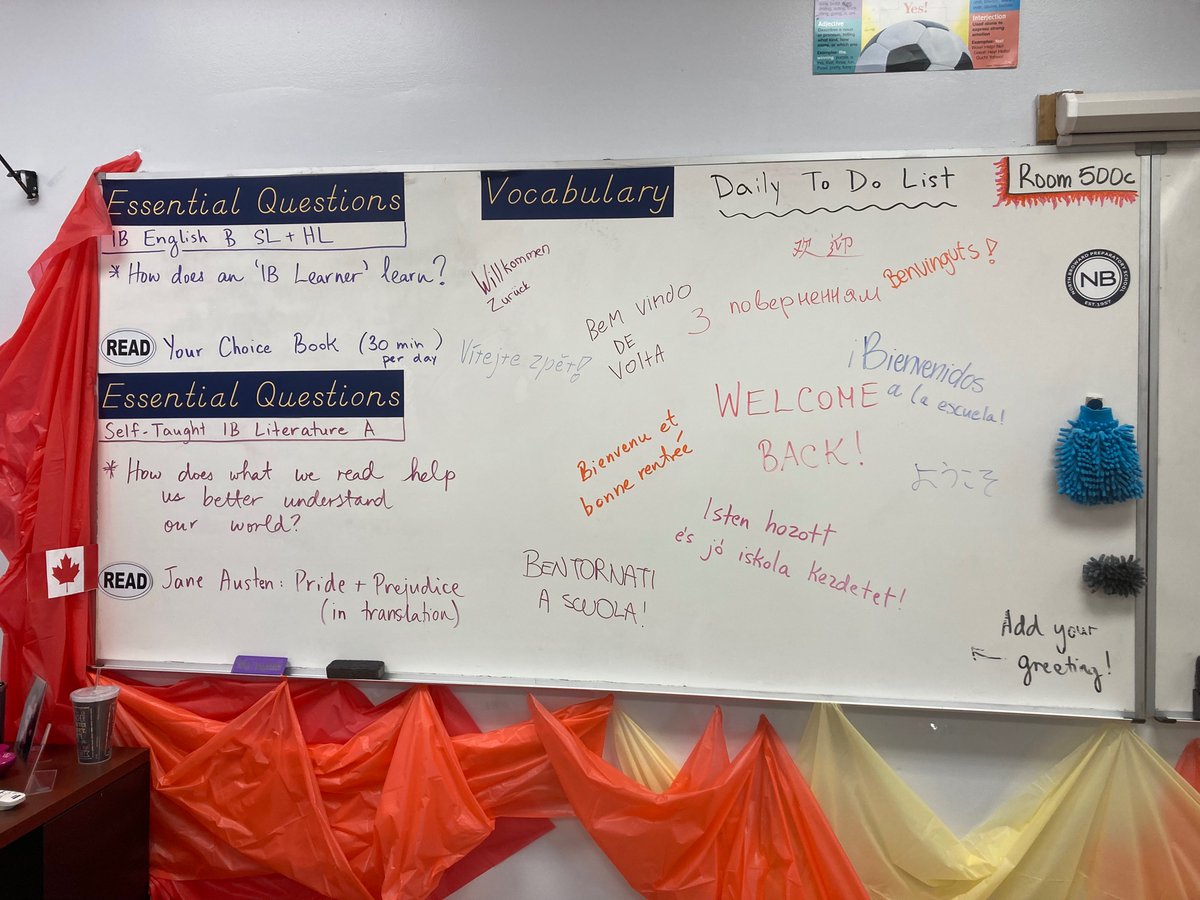 Yes!
Adjective
Interjection
Essential Questions
IB English B SL + HL
* How does an 'IB Learner' learn?
READ Your Choice Book (30 min per day)
Essential Questions
Self-Taught IB Literature A
* How does what we read help
us better understand
our world?
READ Jane Austen: Pride + Prejudice
(in translation)
Vocabulary
Willkommen
Zurück
Vítejte zpět!
Bem vindo
DE
VoltA
Bienvenu et
bonne rentrée
BENTORNATI
A SCUOLA!
Daily To Do List
欢迎
Benvinguts!
З поверненням
¡Bienvenidos
a la escuela!
WELCOME
BACK!
ようこそ
Isten hozott
és jó iskola kezdetet!
Room 500c
NORTH BROWARD PREPARATORY SCHOOL
NB
EST. 1957
Add your
← greeting!